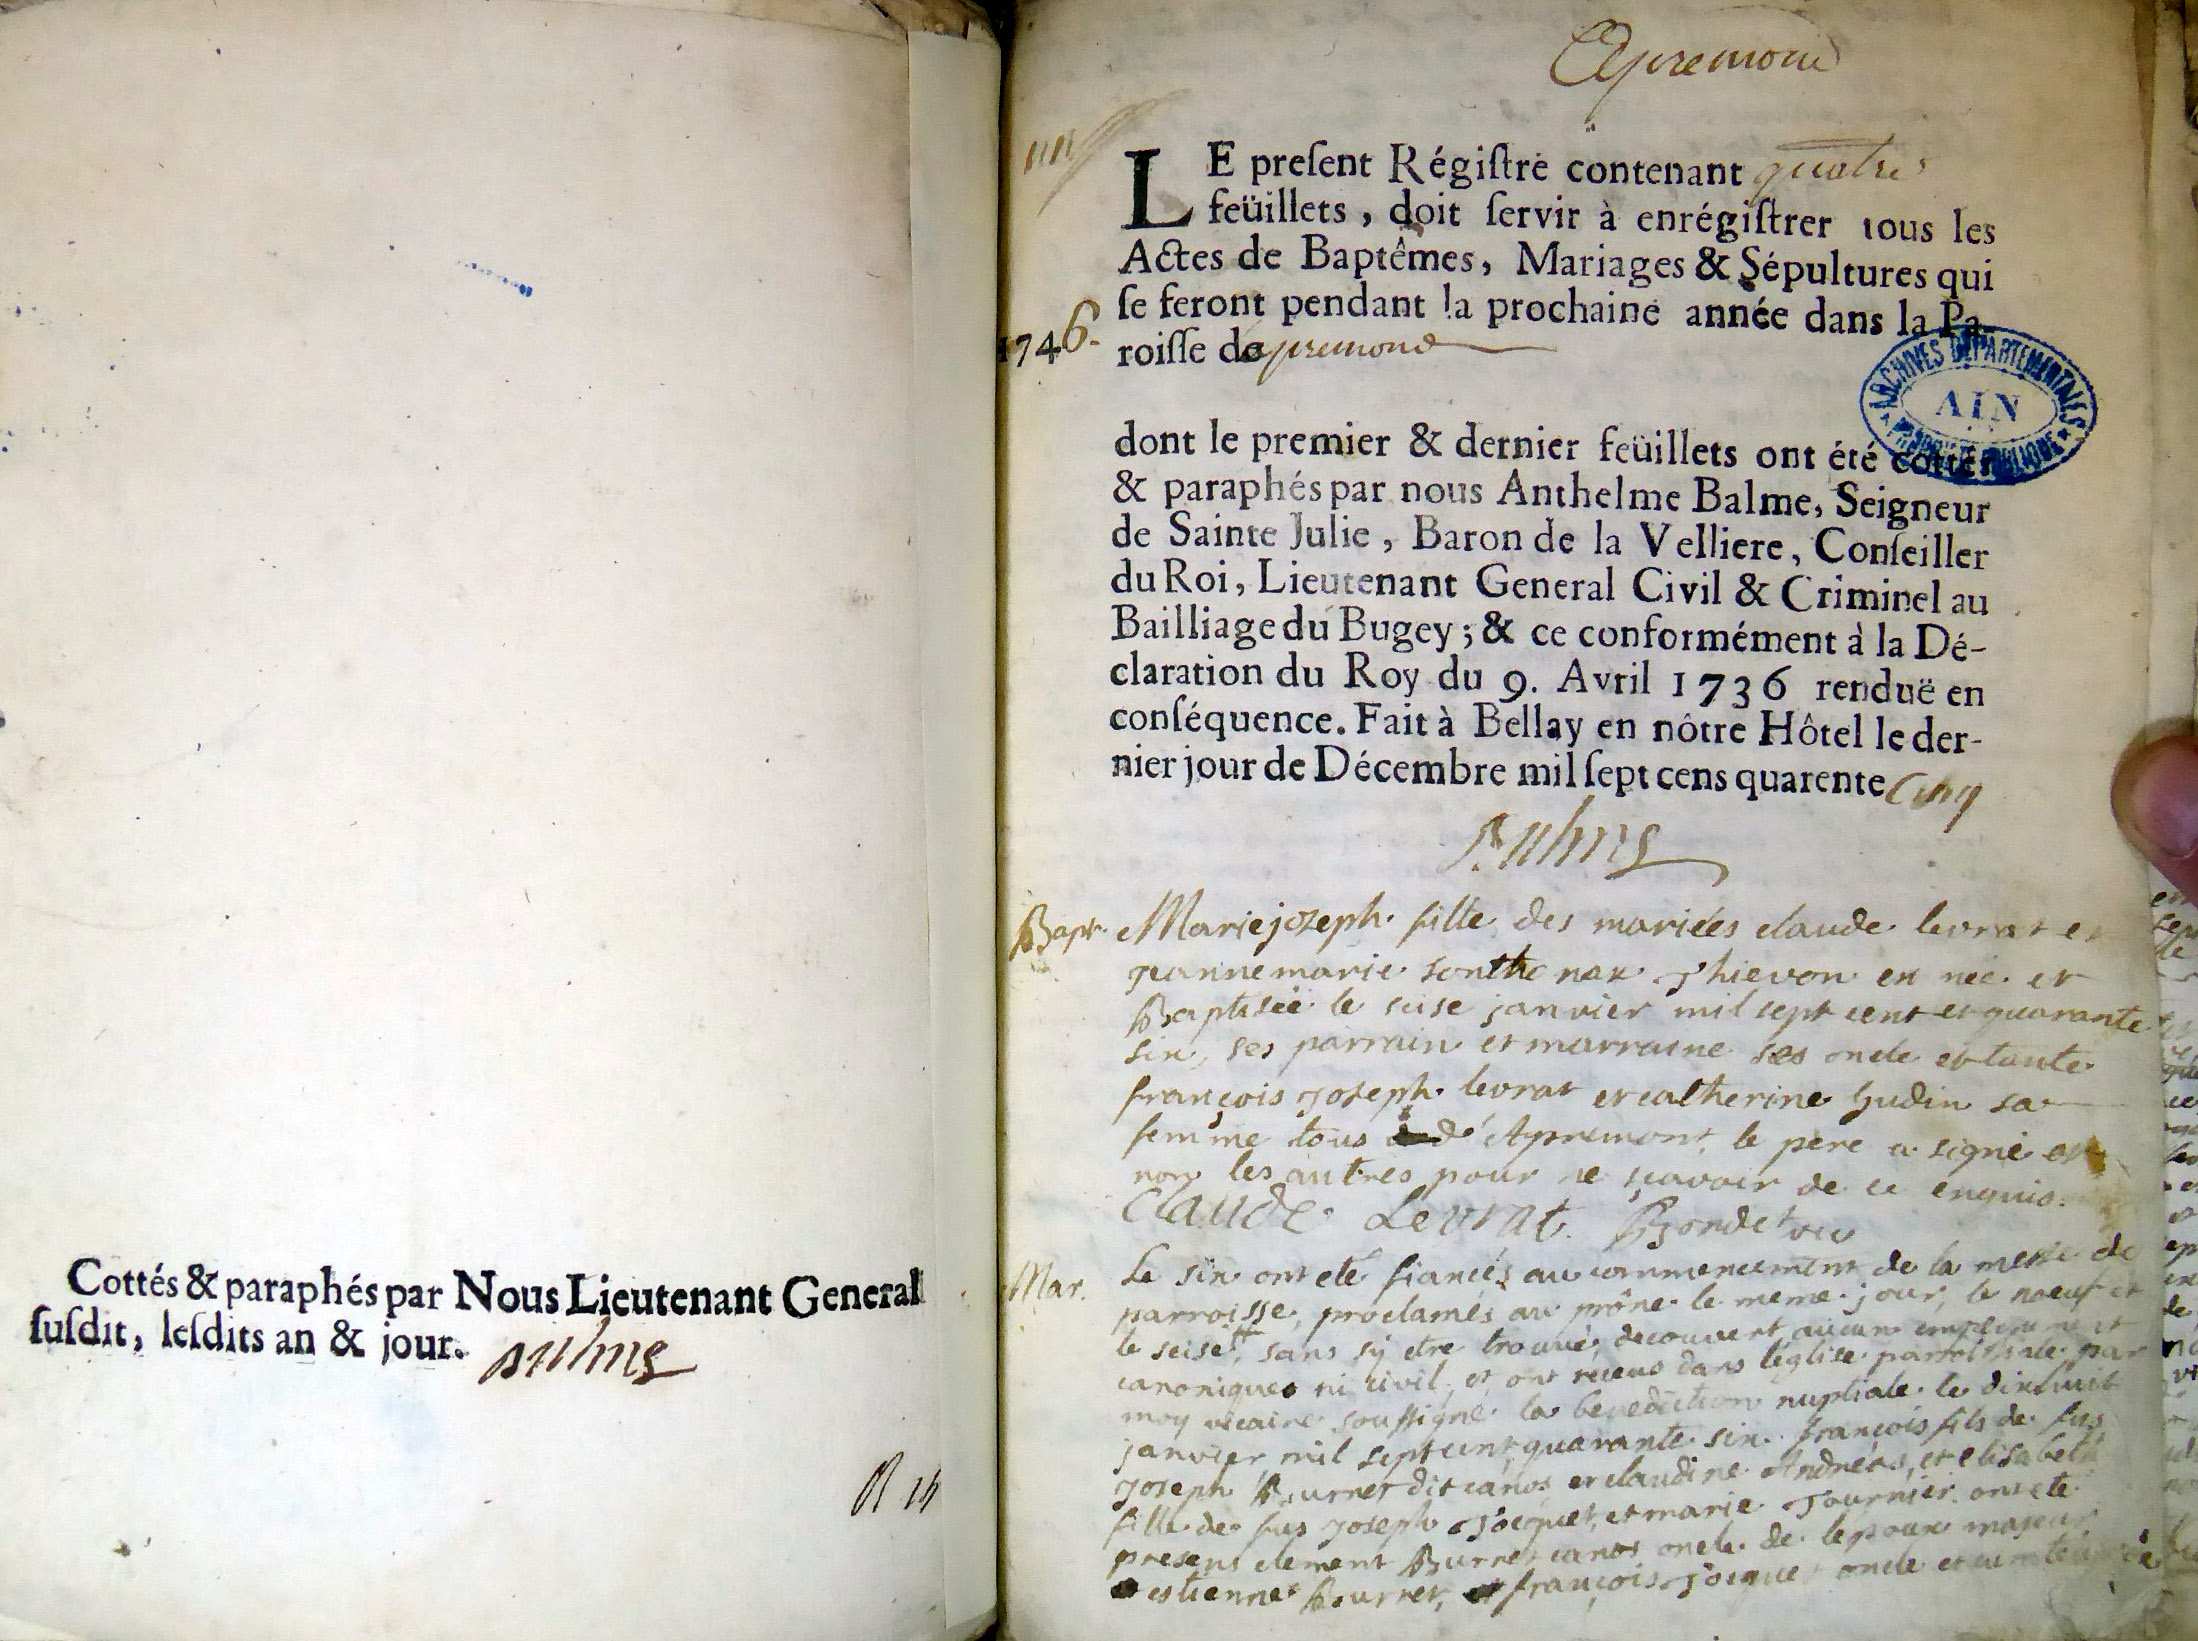 Cottés & paraphés par Nous Lieutenant General
susdit, lesdits an & jour. Balme
Apremond
LE present Régistre contenant quatre
feüillets, doit servir à enrégistrer tous les
Actes de Baptêmes, Mariages & Sépultures qui
se feront pendant la prochaine année dans la Pa-
1746. roisse de apremond
ARCHIVES DEPARTEMENTALES
AIN
dont le premier & dernier feüillets ont été cottés
& paraphés par nous Anthelme Balme, Seigneur
de Sainte Julie, Baron de la Velliere, Conseiller
du Roi, Lieutenant General Civil & Criminel au
Bailliage du Bugey; & ce conformément à la Dé-
claration du Roy du 9. Avril 1736 renduë en
conséquence. Fait à Bellay en nôtre Hôtel le der-
nier jour de Décembre mil sept cens quarente Cinq
Balme
Bapt. Mariejozeph fille des mariées claude levrat et
jeannemarie sonthonax thievon en née et
Baptisée le seise janvier mil sept cent et quarante
six, ses parrain et marraine ses oncle et tante
françois joseph levrat et catherine hudin sa
femme tous d'Apremont, le pere a signé et
non les autres pour ne sçavoir de ce enquis.
Claude Levrat. Bondet
Mar. Le six ont eté fiancés au commencement de la messe de
parroisse, proclamés au prône le meme jour, le noeuf et
le seise, sans sÿ etre trouvé, decouvert aucun
canonique ni civil, et ont receus dans l'eglise parroissiale par
moy vicaire soussigné la benediction nuptiale le dixhuit
janvier mil sept cent quarante six. françois fils de fus
joseph Burnet dit canos et claudine Andréas, et elisabeth
fille de fus joseph jocquet, et marie Tournier. ont eté
presens clement Burnet canos oncle de lepoux majeur
estienne Burnet, françois jocquet oncle et